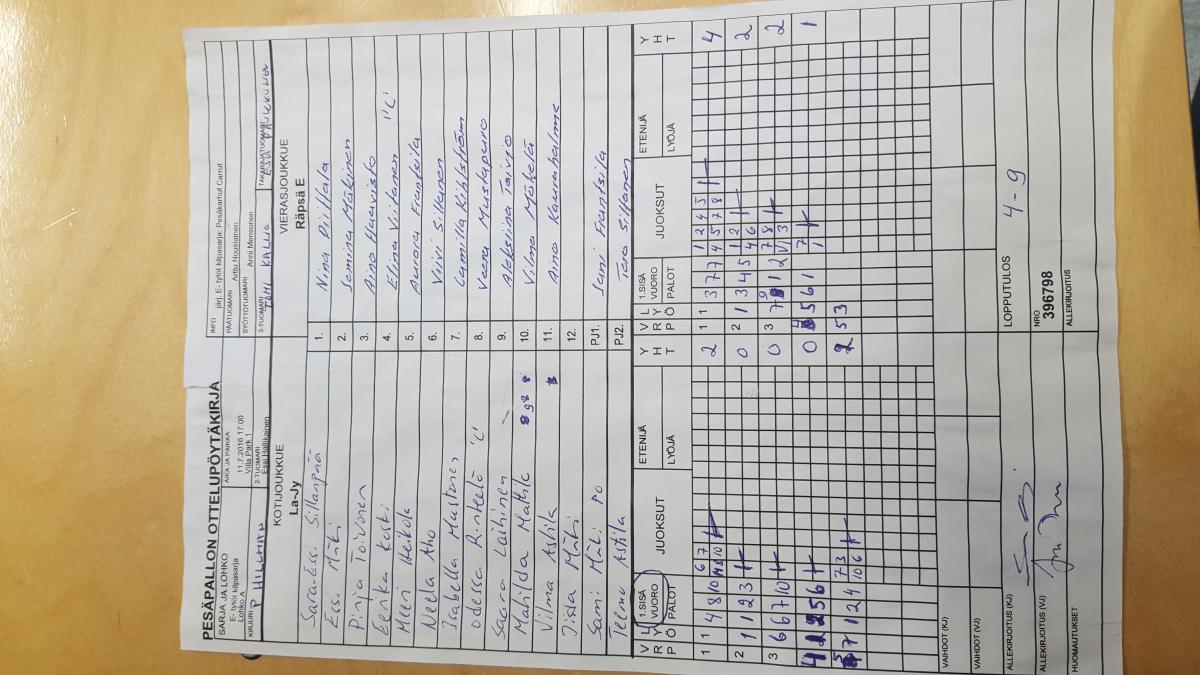 PESÄPALLON OTTELUPÖYTÄKIRJA
SARJA JA LOHKO
E- tytöt kilpasarja
Lohko A
AIKA JA PAIKKA
11.7.2016 17.00
Villa Park 1
INFO järj. E- tytöt kilpasarja: Pesäkarhut Camut
PÄÄTUOMARI Arttu Nousiainen
SYÖTTÖTUOMARI Anni Mensonen
KIRJURI P HILLMAN
2-TUOMARI Essi Hallikainen
3-TUOMARI TOMI KALLIO
TAKARAJATUOMARI
KOTIJOUKKUE
La-Jy
VIERASJOUKKUE
Räpsä E
Sara-Essi Sillanpää
1. Nina Piittala
Essi Mäki
2. Semina Mäkinen
Pinja Toivonen
3. Aino Haavisto
Eerika Koski
4. Elina Viitanen "C"
Meeri Heikola
5. Aurora Frantsila
Neella Aho
6. Viivi Siltanen
Isabella Mustonen
7. Camilla Kihlström
Odessa Rintelä "C"
8. Veera Mustapuro
Saara Laihinen
9. Aleksiina Taivio
Mathilda Mattila
10. Vilma Mäkelä
Vilma Astila
11. Aino Kaunahalme
Iista Mäki
12.
Sami Mäki PO
PJ1. Sami Frantsila
Teemu Astila
PJ2. Taro Siltanen
V R P
L Y Ö
1.SISÄ VUORO
PALOT
JUOKSUT
ETENIJÄ
LYÖJÄ
Y H T
V R P
L Y Ö
1.SISÄ VUORO
PALOT
JUOKSUT
ETENIJÄ
LYÖJÄ
Y H T
1 1 4 8 10
6 7
2
1 1 3 7 7
1 2 4 5
4 5 7 8
4
2 1 1 2 3
0
2 1 3 4 5
1 2
4 6
2
3 6 6 7 10
0
3
7 8
2
4
2 5 6
0
5 6 1
7
1
1
5
7 1 2 4
7 3
10 6
2
5 3
VAIHDOT (KJ)
VAIHDOT (VJ)
ALLEKIRJOITUS (KJ)
LOPPUTULOS 4-9
ALLEKIRJOITUS (VJ)
NRO
396798
HUOMAUTUKSET
ALLEKIRJOITUS